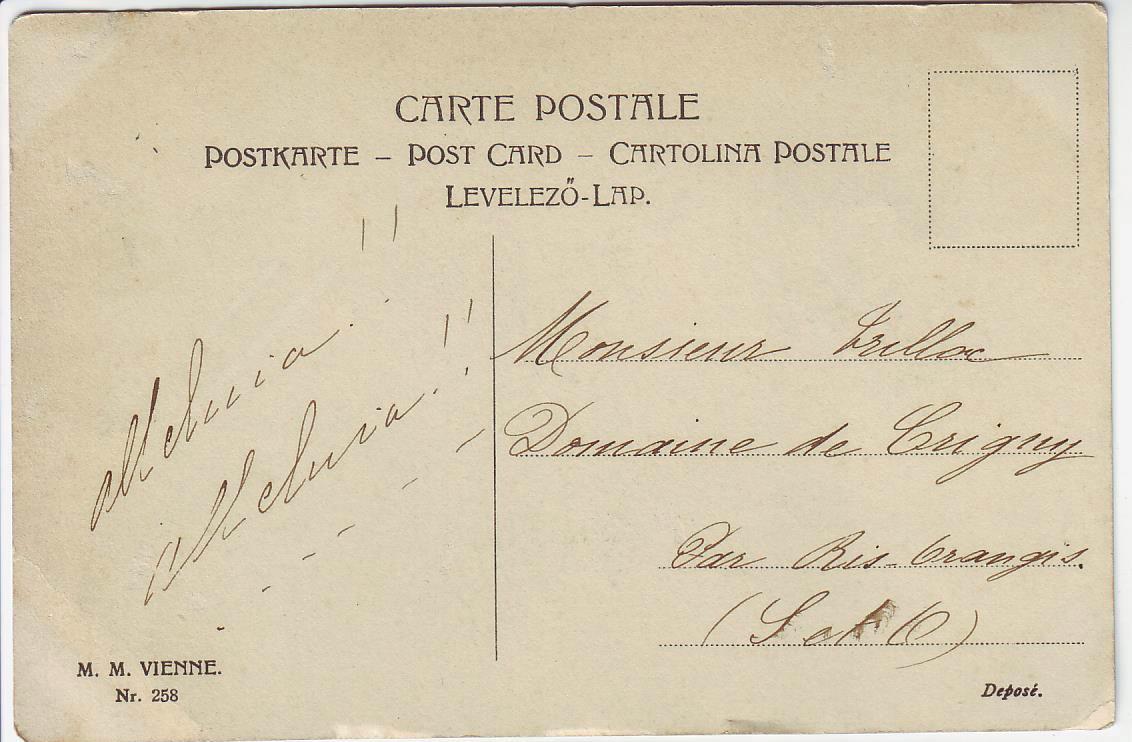 CARTE POSTALE
POSTKARTE – POST CARD – CARTOLINA POSTALE
LEVELEZŐ-LAP.
alleluia . . !!
alleluia . !!
Monsieur Trilloc
Domaine de Trigny
Par Ris-Orangis.
(S et O)
M. M. VIENNE.
Nr. 258
Deposé.